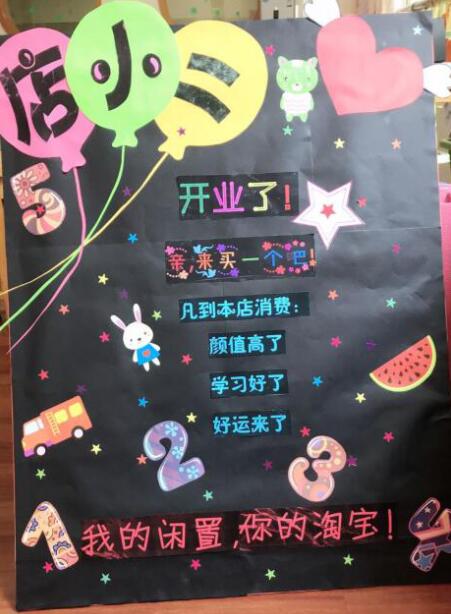 店小二
5
开业了！
亲，来买一个吧！
凡到本店消费：
颜值高了
学习好了
好运来了
2 3
1 4
我的闲置，你的淘宝！